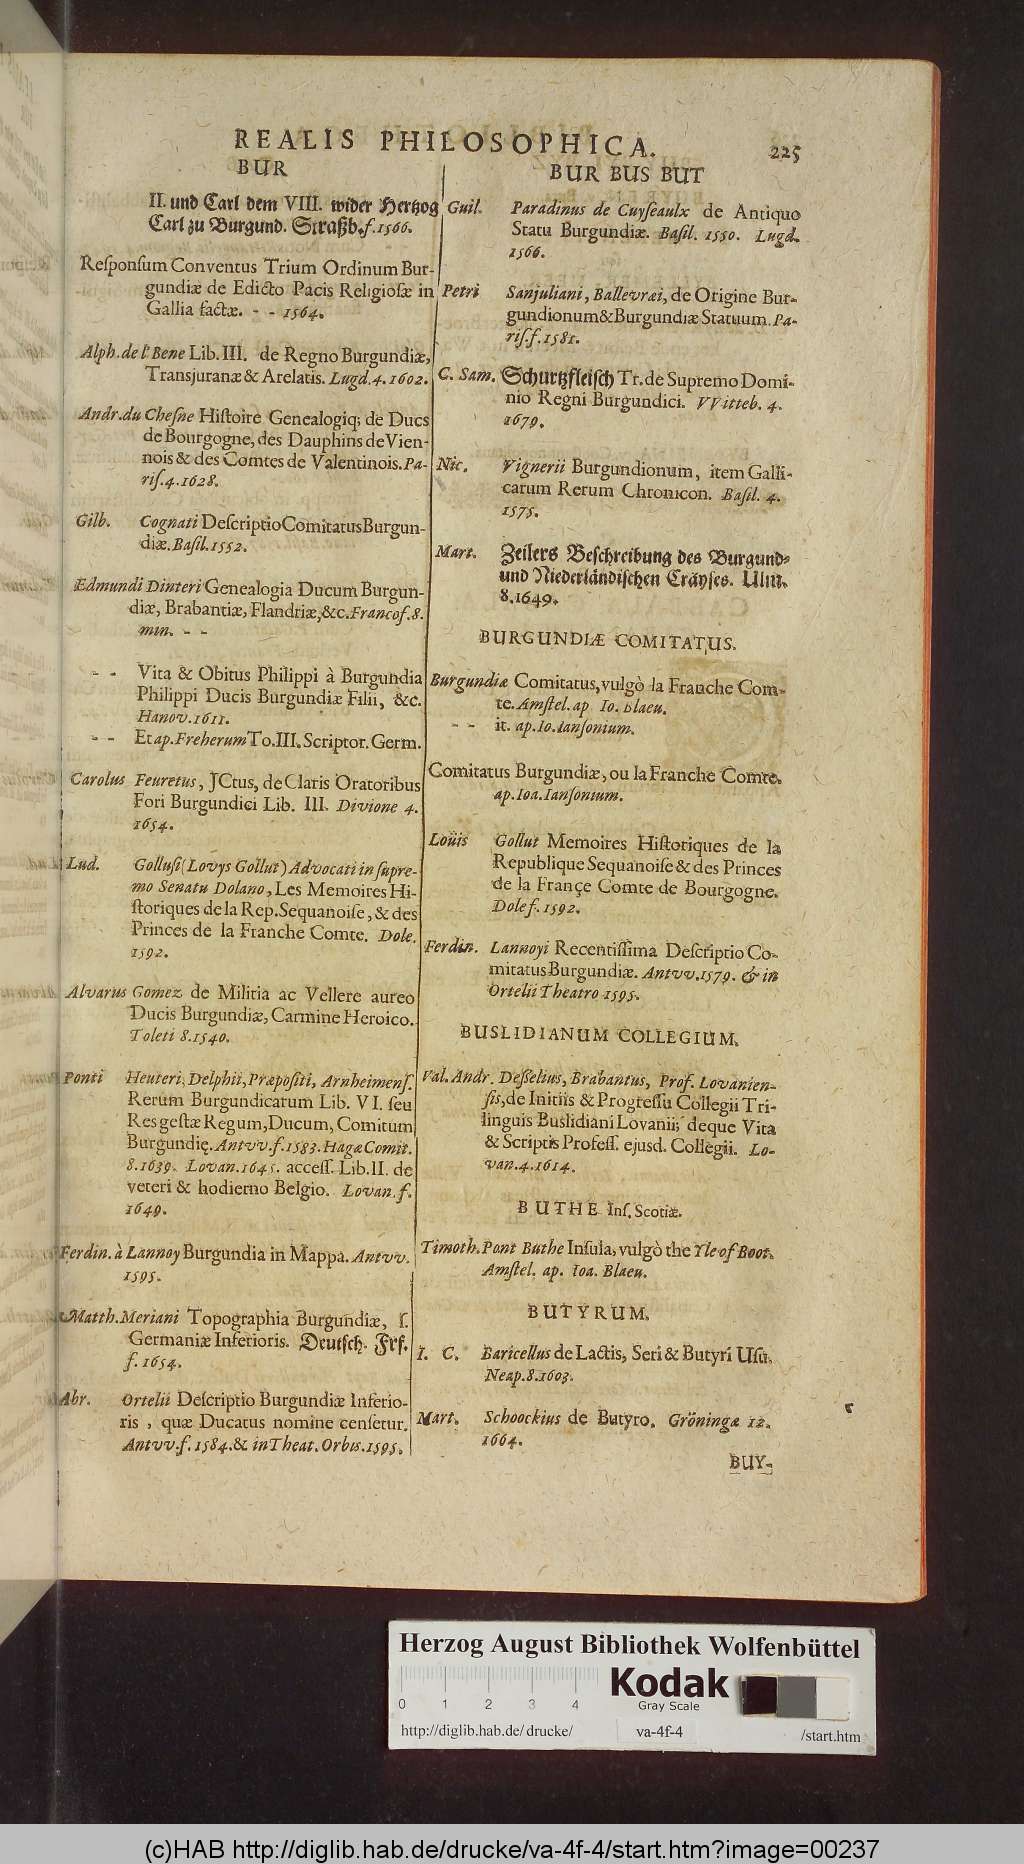 REALIS PHILOSOPHICA.
225
BUR
II. und Carl dem VIII. wider Hertzog
Carl zu Burgund. Straßb. f. 1566.
Reſponſum Conventus Trium Ordinum Bur-
gundiæ de Edicto Pacis Religioſæ in
Gallia factæ. - - 1564.
Alph. de l'Bene Lib. III. de Regno Burgundiæ,
Transjuranæ & Arelatis. Lugd. 4. 1602.
Andr. du Cheſne Hiſtoire Genealogiq; de Ducs
de Bourgogne, des Dauphins de Vien-
nois & des Comtes de Valentinois. Pa-
riſ. 4. 1628.
Gilb. Cognati Deſcriptio Comitatus Burgun-
diæ. Baſil. 1552.
Edmundi Dinteri Genealogia Ducum Burgun-
diæ, Brabantiæ, Flandriæ, &c. Francof. 8.
min. - -
- - Vita & Obitus Philippi à Burgundia
Philippi Ducis Burgundiæ Filii, &c.
Hanov. 1611.
- - Et ap. Freherum To. III. Scriptor. Germ.
Carolus Feuretus, JCtus, de Claris Oratoribus
Fori Burgundici Lib. III. Divione 4.
1654.
Lud. Golluſi (Lovys Gollut) Advocati in ſupre-
mo Senatu Dolano, Les Memoires Hi-
ſtoriques de la Rep. Sequanoiſe, & des
Princes de la Franche Comte. Dole.
1592.
Alvarus Gomez de Militia ac Vellere aureo
Ducis Burgundiæ, Carmine Heroico.
Toleti 8. 1540.
Ponti Heuteri, Delphii, Præpoſiti, Arnheimenſ.
Rerum Burgundicarum Lib. VI. ſeu
Res geſtæ Regum, Ducum, Comitum
Burgundię. Antvv. f. 1583. Hagæ Comit.
8. 1639. Lovan. 1645. acceſſ. Lib. II. de
veteri & hodierno Belgio. Lovan. f.
1649.
Ferdin. à Lannoy Burgundia in Mappa. Antvv.
1595.
Matth. Meriani Topographia Burgundiæ, ſ.
Germaniæ Inferioris. Deutſch. Frf.
f. 1654.
Abr. Ortelii Deſcriptio Burgundiæ Inferio-
ris, quæ Ducatus nomine cenſetur.
Antvv. f. 1584. & in Theat. Orbis. 1595.
BUR BUS BUT
Guil. Paradinus de Cuyſeaulx de Antiquo
Statu Burgundiæ. Baſil. 1550. Lugd.
1566.
Petri Sanjuliani, Ballevræi, de Origine Bur-
gundionum & Burgundiæ Statuum. Pa-
riſ. f. 1581.
C. Sam. Schurtzfleiſch Tr. de Supremo Domi-
nio Regni Burgundici. VVitteb. 4.
1679.
Nic. Vignerii Burgundionum, item Galli-
carum Rerum Chronicon. Baſil. 4.
1575.
Mart. Zeilers Beſchreibung des Burgund-
und Niederländiſchen Cräyſes. Ulm.
8. 1649.
BURGUNDIÆ COMITATUS.
Burgundiæ Comitatus, vulgò la Franche Com-
te. Amſtel. ap Io. Blaeu.
- - it. ap. Io. Ianſonium.
Comitatus Burgundiæ, ou la Franche Comte.
ap. Ioa. Ianſonium.
Loüis Gollut Memoires Hiſtoriques de la
Republique Sequanoiſe & des Princes
de la Françe Comte de Bourgogne.
Dole f. 1592.
Ferdin. Lannoyi Recentiſſima Deſcriptio Co-
mitatus Burgundiæ. Antvv. 1579. & in
Ortelii Theatro 1595.
BUSLIDIANUM COLLEGIUM.
Val. Andr. Deſſelius, Brabantus, Prof. Lovanien-
ſis, de Initiis & Progreſſu Collegii Tri-
linguis Buslidiani Lovanii; deque Vita
& Scriptis Profeſſ. ejusd. Collegii. Lo-
van. 4. 1614.
BUTHE Inſ. Scotiæ.
Timoth. Pont Buthe Inſula, vulgò the Yle of Boot.
Amſtel. ap. Ioa. Blaeu.
BUTYRUM.
I. C. Baricellus de Lactis, Seri & Butyri Uſu.
Neap. 8. 1603.
Mart. Schoockius de Butyro. Gröningæ 12.
1664.
BUY-
Herzog August Bibliothek Wolfenbüttel
0 1 2 3 4
Kodak
Gray Scale
http://diglib.hab.de/drucke/ va-4f-4 /start.htm
(c)HAB http://diglib.hab.de/drucke/va-4f-4/start.htm?image=00237